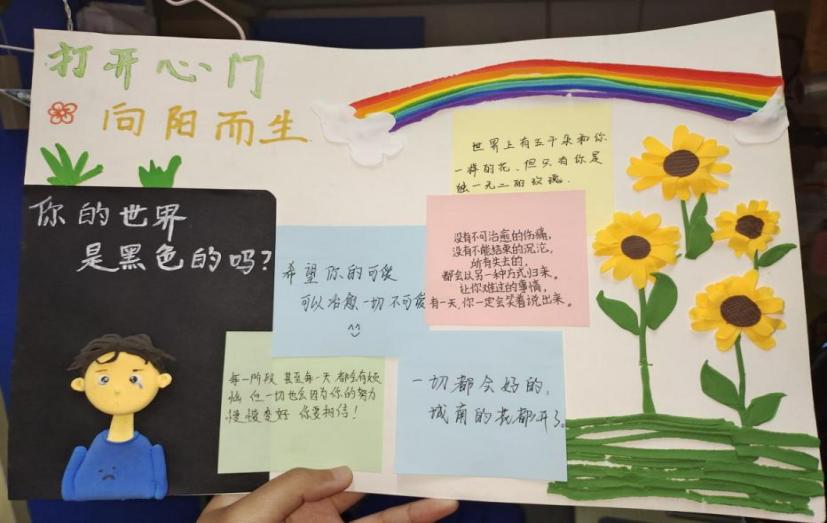 打开心门
向阳而生
你的世界
是黑色的吗?
世界上有五千朵和你
一样的花,但只有你是
独一无二的玫瑰.
没有不可治愈的伤痛,
没有不能结束的沉沦,
所有失去的,
都会以另一种方式归来。
让你难过的事情,
有一天,你一定会笑着说出来。
希望你的可爱
可以治愈一切不可爱
每一阶段甚至每一天都会有烦
恼 但一切也会因为你的努力
慢慢变好 你要相信!
一切都会好的,
城南的花都开了。